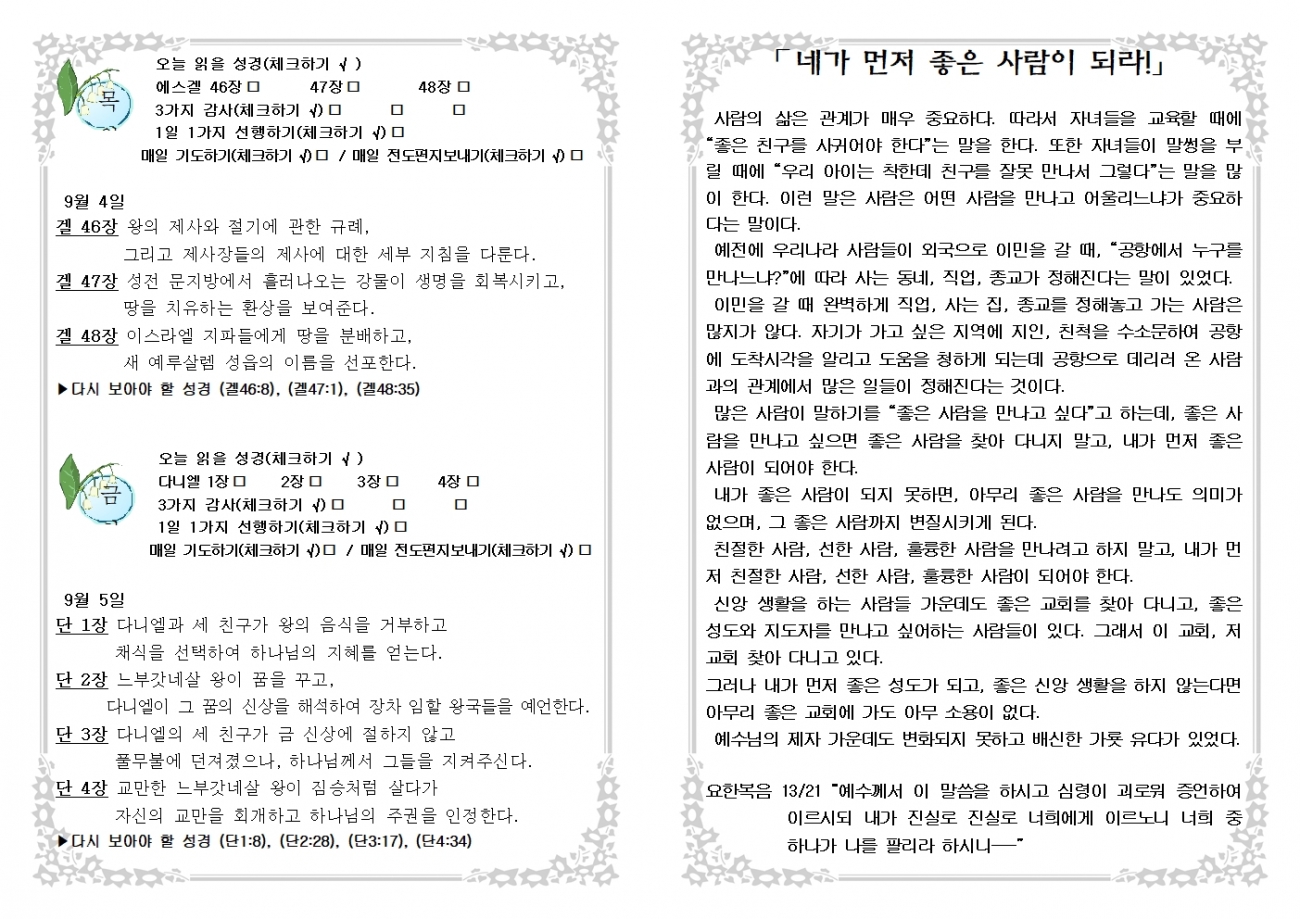 목
오늘 읽을 성경(체크하기 √ )
에스겔 46장 □ 47장 □ 48장 □
3가지 감사(체크하기 √) □ □ □
1일 1가지 선행하기(체크하기 √) □
매일 기도하기(체크하기 √) □ / 매일 전도편지보내기(체크하기 √) □
9월 4일
겔 46장 왕의 제사와 절기에 관한 규례,
그리고 제사장들의 제사에 대한 세부 지침을 다룬다.
겔 47장 성전 문지방에서 흘러나오는 강물이 생명을 회복시키고,
땅을 치유하는 환상을 보여준다.
겔 48장 이스라엘 지파들에게 땅을 분배하고,
새 예루살렘 성읍의 이름을 선포한다.
▶다시 보아야 할 성경 (겔46:8), (겔47:1), (겔48:35)
금
오늘 읽을 성경(체크하기 √ )
다니엘 1장 □ 2장 □ 3장 □ 4장 □
3가지 감사(체크하기 √) □ □ □
1일 1가지 선행하기(체크하기 √) □
매일 기도하기(체크하기 √) □ / 매일 전도편지보내기(체크하기 √) □
9월 5일
단 1장 다니엘과 세 친구가 왕의 음식을 거부하고
채식을 선택하여 하나님의 지혜를 얻는다.
단 2장 느부갓네살 왕이 꿈을 꾸고,
다니엘이 그 꿈의 신상을 해석하여 장차 임할 왕국들을 예언한다.
단 3장 다니엘의 세 친구가 금 신상에 절하지 않고
풀무불에 던져졌으나, 하나님께서 그들을 지켜주신다.
단 4장 교만한 느부갓네살 왕이 짐승처럼 살다가
자신의 교만을 회개하고 하나님의 주권을 인정한다.
▶다시 보아야 할 성경 (단1:8), (단2:28), (단3:17), (단4:34)
「네가 먼저 좋은 사람이 되라!」
사람의 삶은 관계가 매우 중요하다. 따라서 자녀들을 교육할 때에
“좋은 친구를 사귀어야 한다”는 말을 한다. 또한 자녀들이 말썽을 부
릴 때에 “우리 아이는 착한데 친구를 잘못 만나서 그렇다”는 말을 많
이 한다. 이런 말은 사람은 어떤 사람을 만나고 어울리느냐가 중요하
다는 말이다.
예전에 우리나라 사람들이 외국으로 이민을 갈 때, “공항에서 누구를
만나느냐?”에 따라 사는 동네, 직업, 종교가 정해진다는 말이 있었다.
이민을 갈 때 완벽하게 직업, 사는 집, 종교를 정해놓고 가는 사람은
많지가 않다. 자기가 가고 싶은 지역에 지인, 친척을 수소문하여 공항
에 도착시각을 알리고 도움을 청하게 되는데 공항으로 데리러 온 사람
과의 관계에서 많은 일들이 정해진다는 것이다.
많은 사람이 말하기를 “좋은 사람을 만나고 싶다”고 하는데, 좋은 사
람을 만나고 싶으면 좋은 사람을 찾아 다니지 말고, 내가 먼저 좋은
사람이 되어야 한다.
내가 좋은 사람이 되지 못하면, 아무리 좋은 사람을 만나도 의미가
없으며, 그 좋은 사람까지 변질시키게 된다.
친절한 사람, 선한 사람, 훌륭한 사람을 만나려고 하지 말고, 내가 먼
저 친절한 사람, 선한 사람, 훌륭한 사람이 되어야 한다.
신앙 생활을 하는 사람들 가운데도 좋은 교회를 찾아 다니고, 좋은
성도와 지도자를 만나고 싶어하는 사람들이 있다. 그래서 이 교회, 저
교회 찾아 다니고 있다.
그러나 내가 먼저 좋은 성도가 되고, 좋은 신앙 생활을 하지 않는다면
아무리 좋은 교회에 가도 아무 소용이 없다.
예수님의 제자 가운데도 변화되지 못하고 배신한 가룟 유다가 있었다.
요한복음 13/21 “예수께서 이 말씀을 하시고 심령이 괴로워 증언하여
이르시되 내가 진실로 진실로 너희에게 이르노니 너희 중
하나가 나를 팔리라 하시니──”